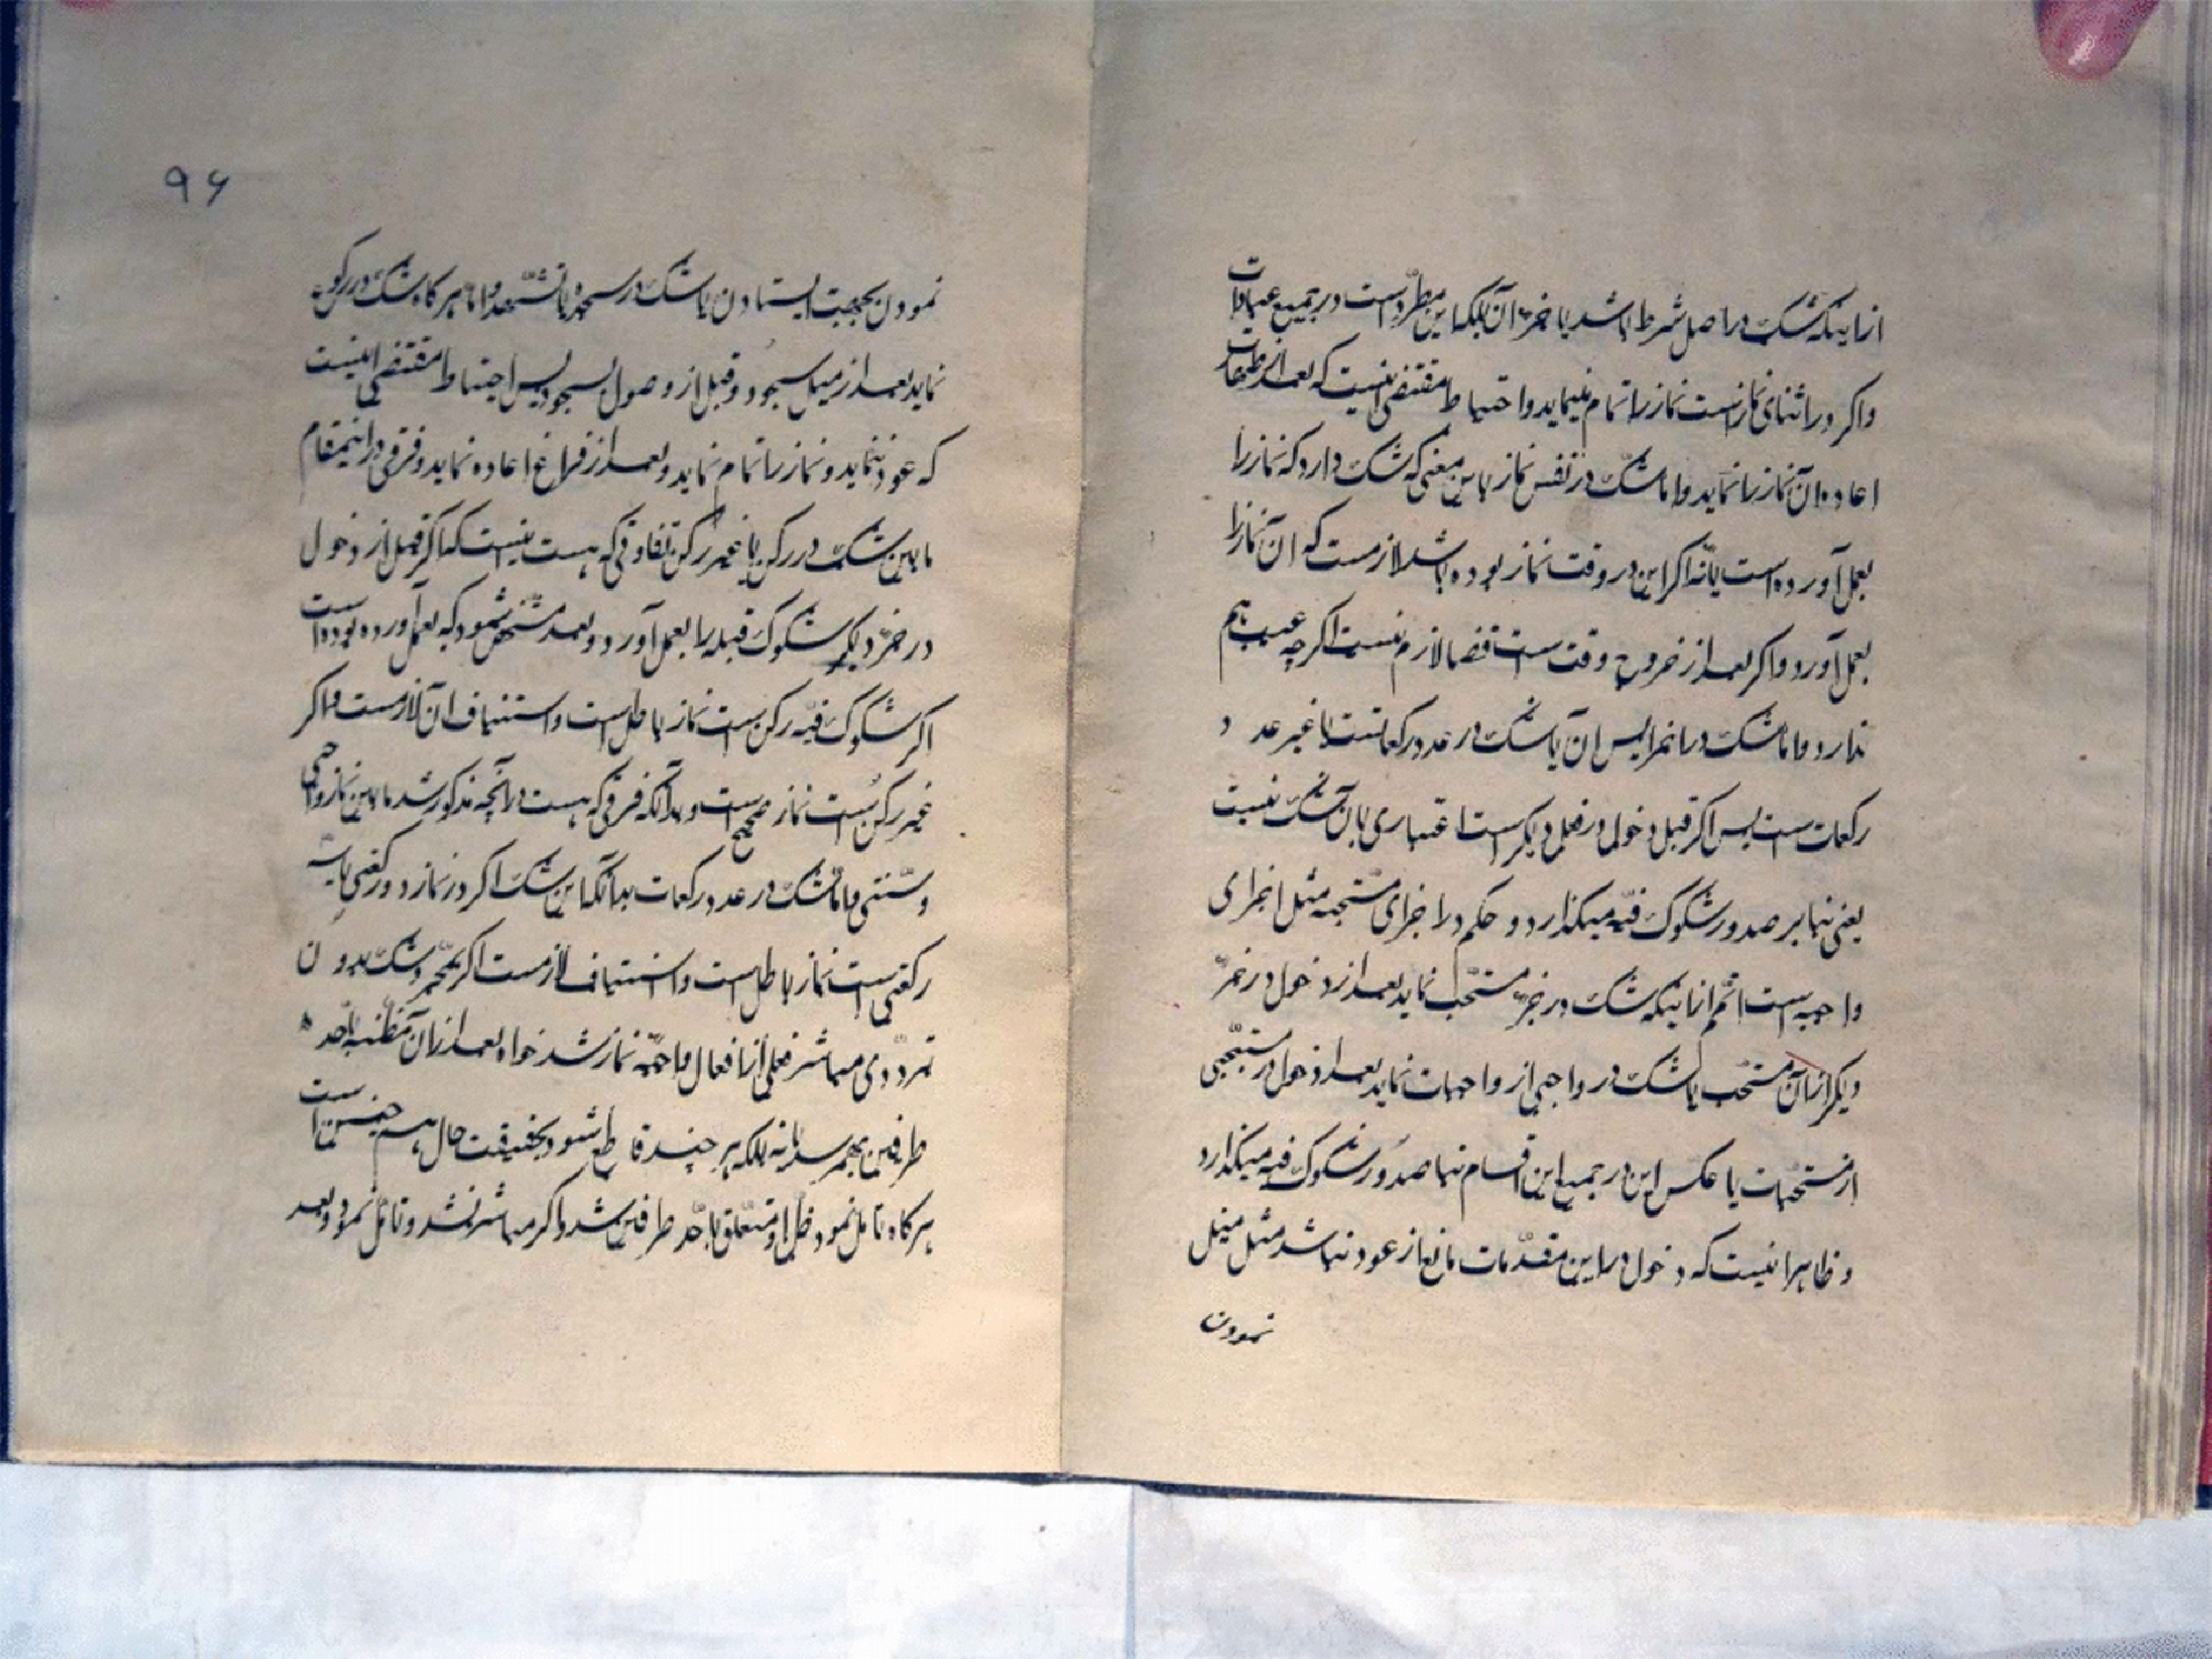 از اینکه شک در اصل شرط باشد یا جزء آن بلکه این مطرد است در جمیع عبادات
و اگر در اثنای نماز است نماز را تمام مینماید و احتیاط مقتضی اینست که بعد از طهارت
اعاده آن نماز را نماید و اما شک در نفس نماز باین معنی که شک دارد که نماز را
بعمل آورده است یا نه اگر این در وقت نماز بوده باشد لازمست که آن نماز را
بعمل آورد و اگر بعد از خروج وقت است قضا لازم نیست اگرچه عیب هم
ندارد و اما شک در اجزا پس آن یا شک در عدد رکعاتست یا غیر عدد
رکعات است پس اگر قبل دخول در فعل دیگر است اعتباری بآن شک نیست
یعنی بنا بر صدور مشکوک فیه میگذارد و حکم در اجزای مستحبه مثل اجزای
واجبه است اعم از اینکه شک در جزء مستحب نماید بعد از دخول در جزء
دیگر از آن مستحب یا شک در واجبی از واجبات نماید بعد از دخول در مستحبی
از مستحبات یا عکس این در جمیع این اقسام بنا صدور مشکوک فیه میگذارد
و ظاهر اینست که دخول در این مقدمات مانع از عود نباشد مثل میل
نمودن
۹۶
نمودن بجهت ایستادن یا شک در سجود یا تشهد و اما هر گاه شک در رکوع
نماید بعد از میل بسجود و قبل از وصول بسجود پس احتیاط مقتضی اینست
که عود ننماید و نماز را تمام نماید و بعد از فراغ اعاده نماید و فرقی در اینمقام
مابین شک در رکن یا غیر رکن تفاوتی که هست اینست که اگر قبل از دخول
در جزء دیگر مشکوک فیه را بعمل آورد و بعد مشخص نمود که بعمل آورده بوده است
اگر مشکوک فیه رکن است نماز باطل است و استیناف آن لازمست و اگر
غیر رکن است نماز صحیح است و بدانکه فرقی که هست در آنچه مذکور شد مابین نماز واجبی
و سنتی و اما شک در عدد رکعات بدانکه این شک اگر در نماز دو رکعتی یا سه
رکعتی است نماز باطل است و استیناف لازمست اگر بمجرد شک بدون
تردّدی مباشر فعلی از افعال واجبه نماز شد خواه بعد از آن مظنه باحد
طرفین بهمرساند یا نه بلکه هر چند قاطع شود بحقیقت حال هم چنین است
هر گاه تأمل نمود و ظن او متعلق باحد طرفین شد و اگر مباشر نشد و تأمل نمود و بعد